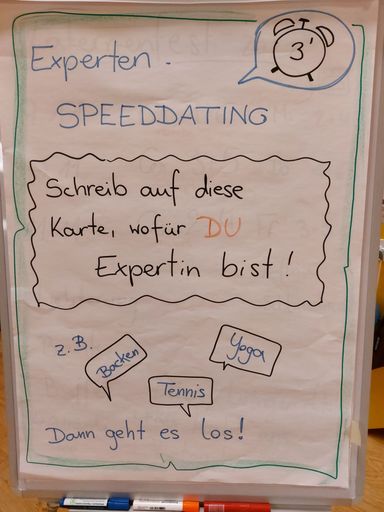 3'
Experten -
SPEEDDATING
Schreib auf diese
Karte, wofür DU
Expertin bist!
z.B.
Backen
Tennis
Yoga
Dann geht es los!